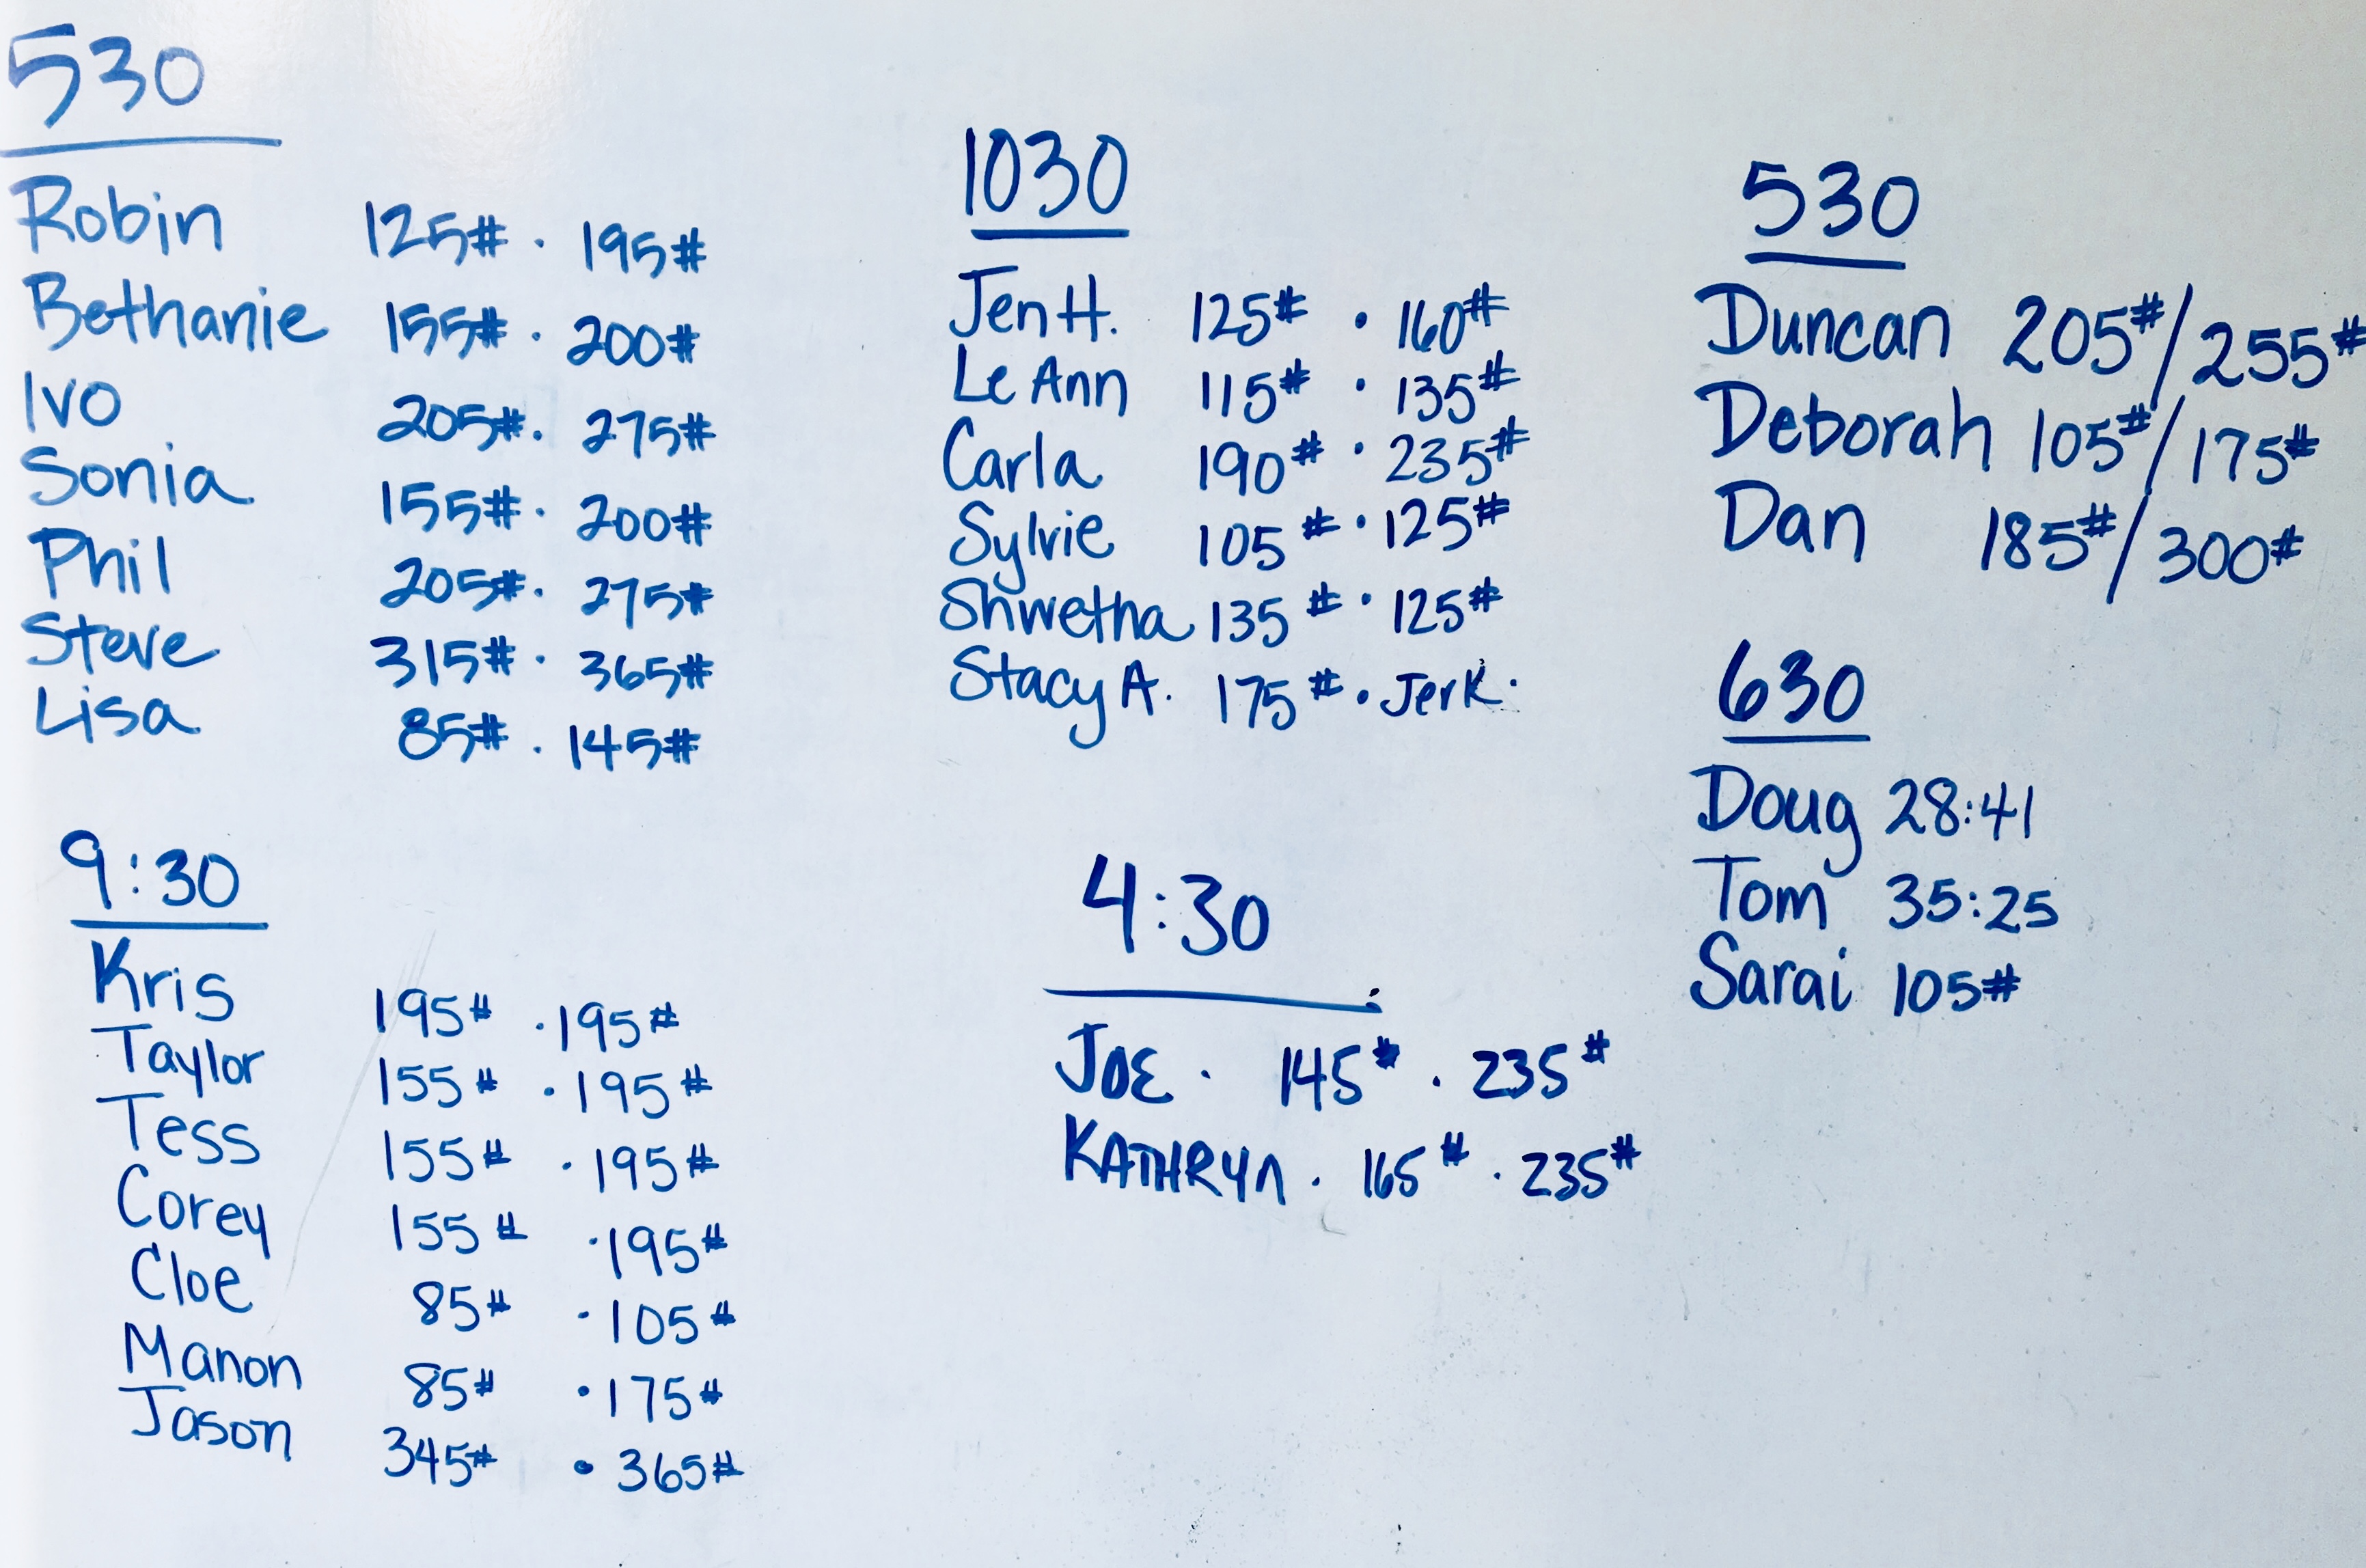 530
Robin 125# · 195#
Bethanie 155# · 200#
Ivo 205# · 275#
Sonia 155# · 200#
Phil 205# · 275#
Steve 315# · 365#
Lisa 85# · 145#
9:30
Kris 195# · 195#
Taylor 155# · 195#
Tess 155# · 195#
Corey 155# · 195#
Cloe 85# · 105#
Manon 85# · 175#
Jason 345# · 365#
1030
Jen H. 125# · 160#
Le Ann 115# · 135#
Carla 190# · 235#
Sylvie 105# · 125#
Shwetha 135# · 125#
Stacy A. 175# · Jerk.
4:30
JOE · 145# · 235#
KATHRYN · 165# · 235#
530
Duncan 205#/255#
Deborah 105#/175#
Dan 185#/300#
630
Doug 28:41
Tom 35:25
Sarai 105#